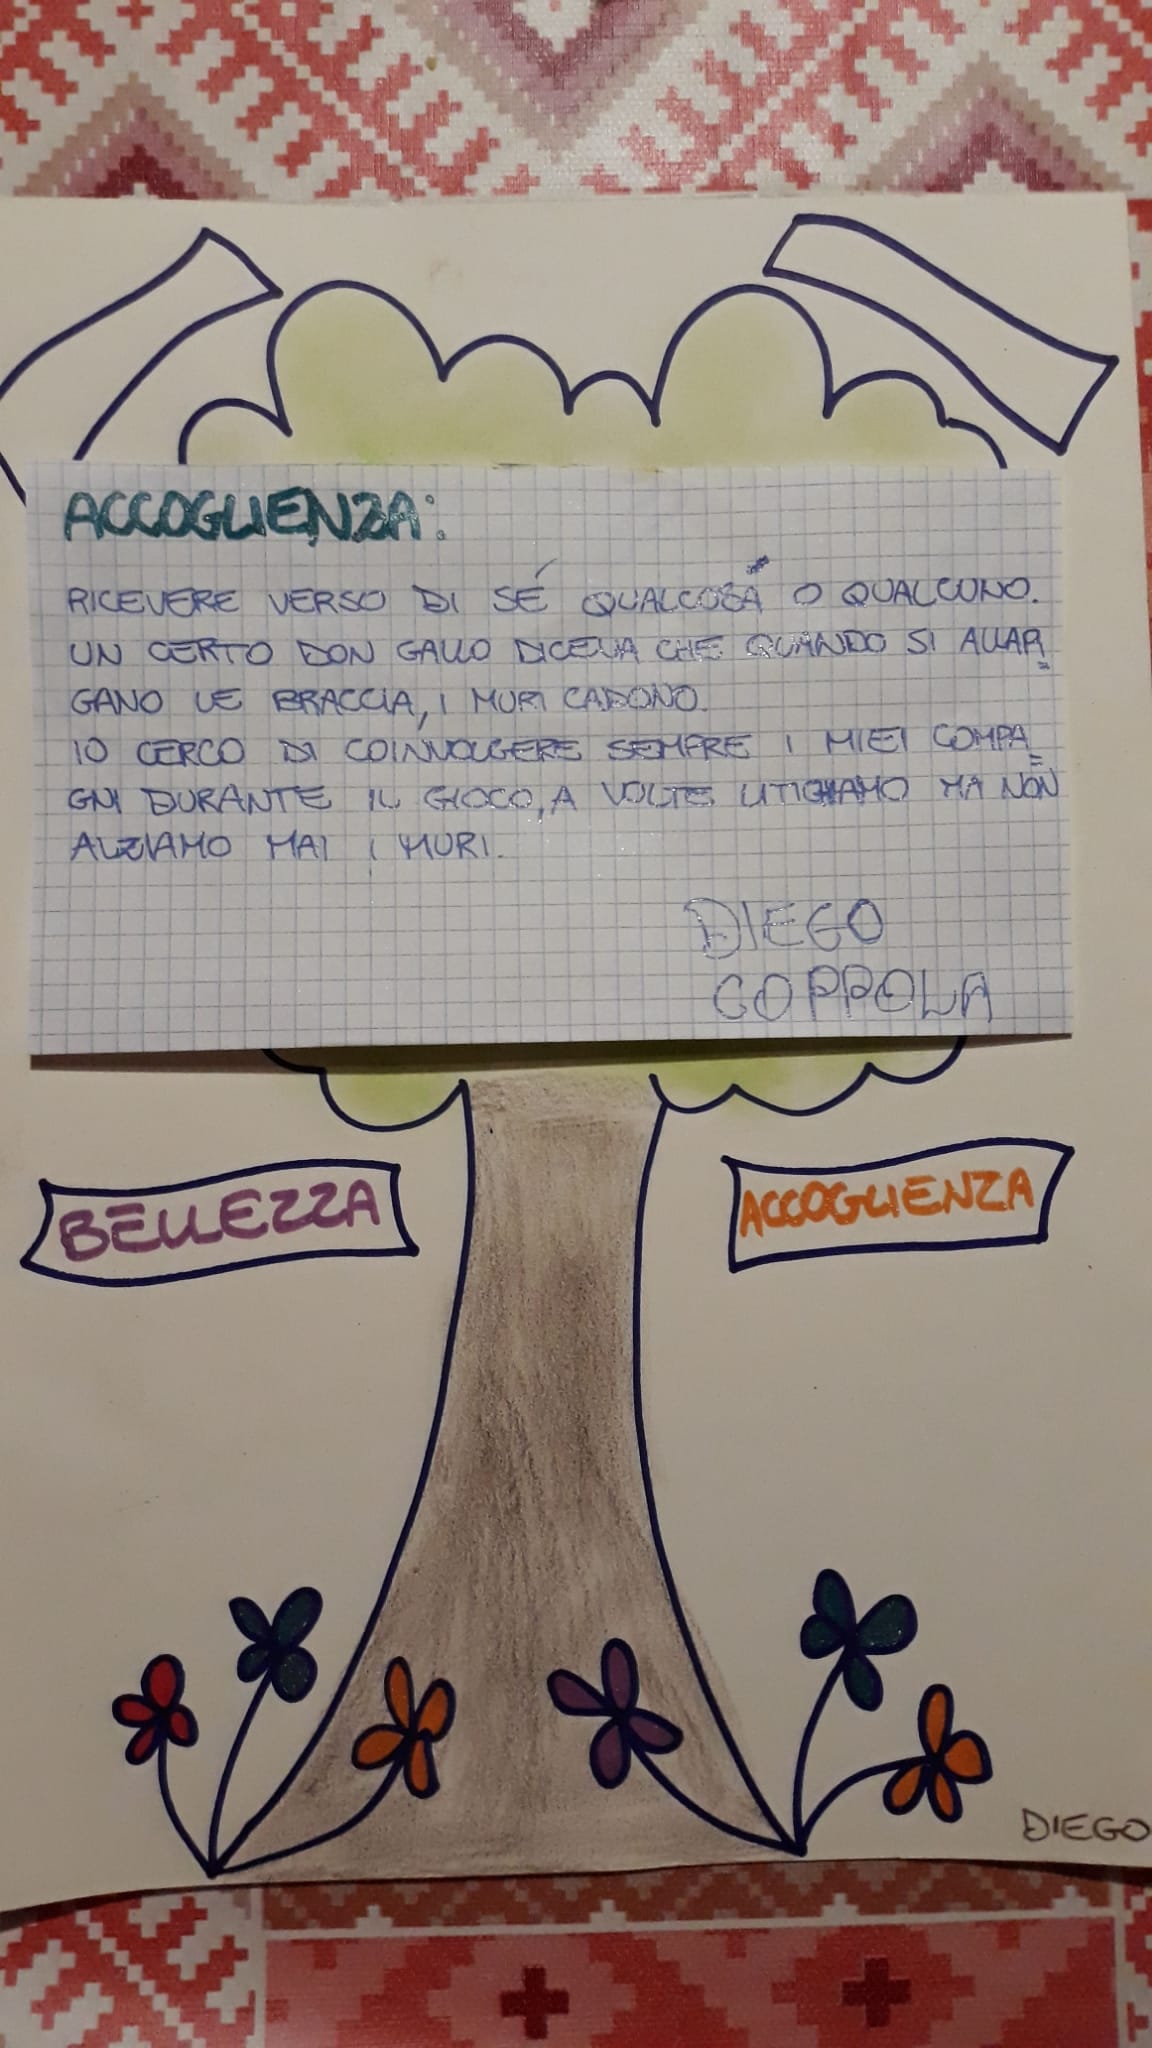 ACCOGLIENZA:
RICEVERE VERSO DI SÉ QUALCOSA O QUALCUNO.
UN CERTO DON GALLO DICEVA CHE QUANDO SI ALLAR=
GANO LE BRACCIA, I MURI CADONO.
IO CERCO DI COINVOLGERE SEMPRE I MIEI COMPA=
GNI DURANTE IL GIOCO, A VOLTE LITIGHIAMO MA NON
ALZIAMO MAI I MURI.
DIEGO
COPPOLA
BELLEZZA
ACCOGLIENZA
DIEGO